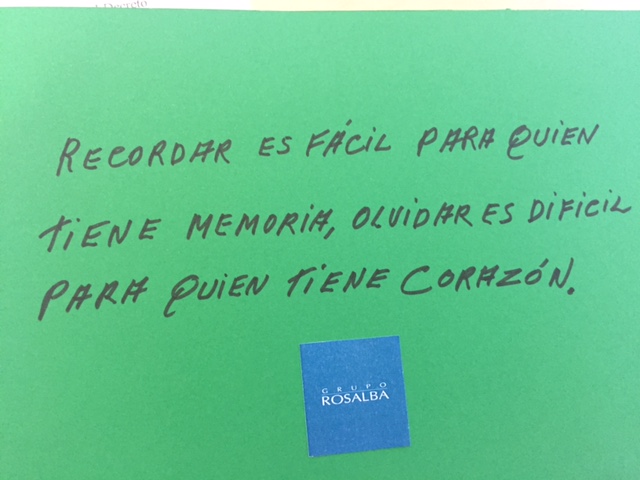 Decreto
RECORDAR ES FÁCIL PARA QUIEN
TIENE MEMORIA, OLVIDAR ES DIFICIL
PARA QUIEN TIENE CORAZÓN.
GRUPO
ROSALBA